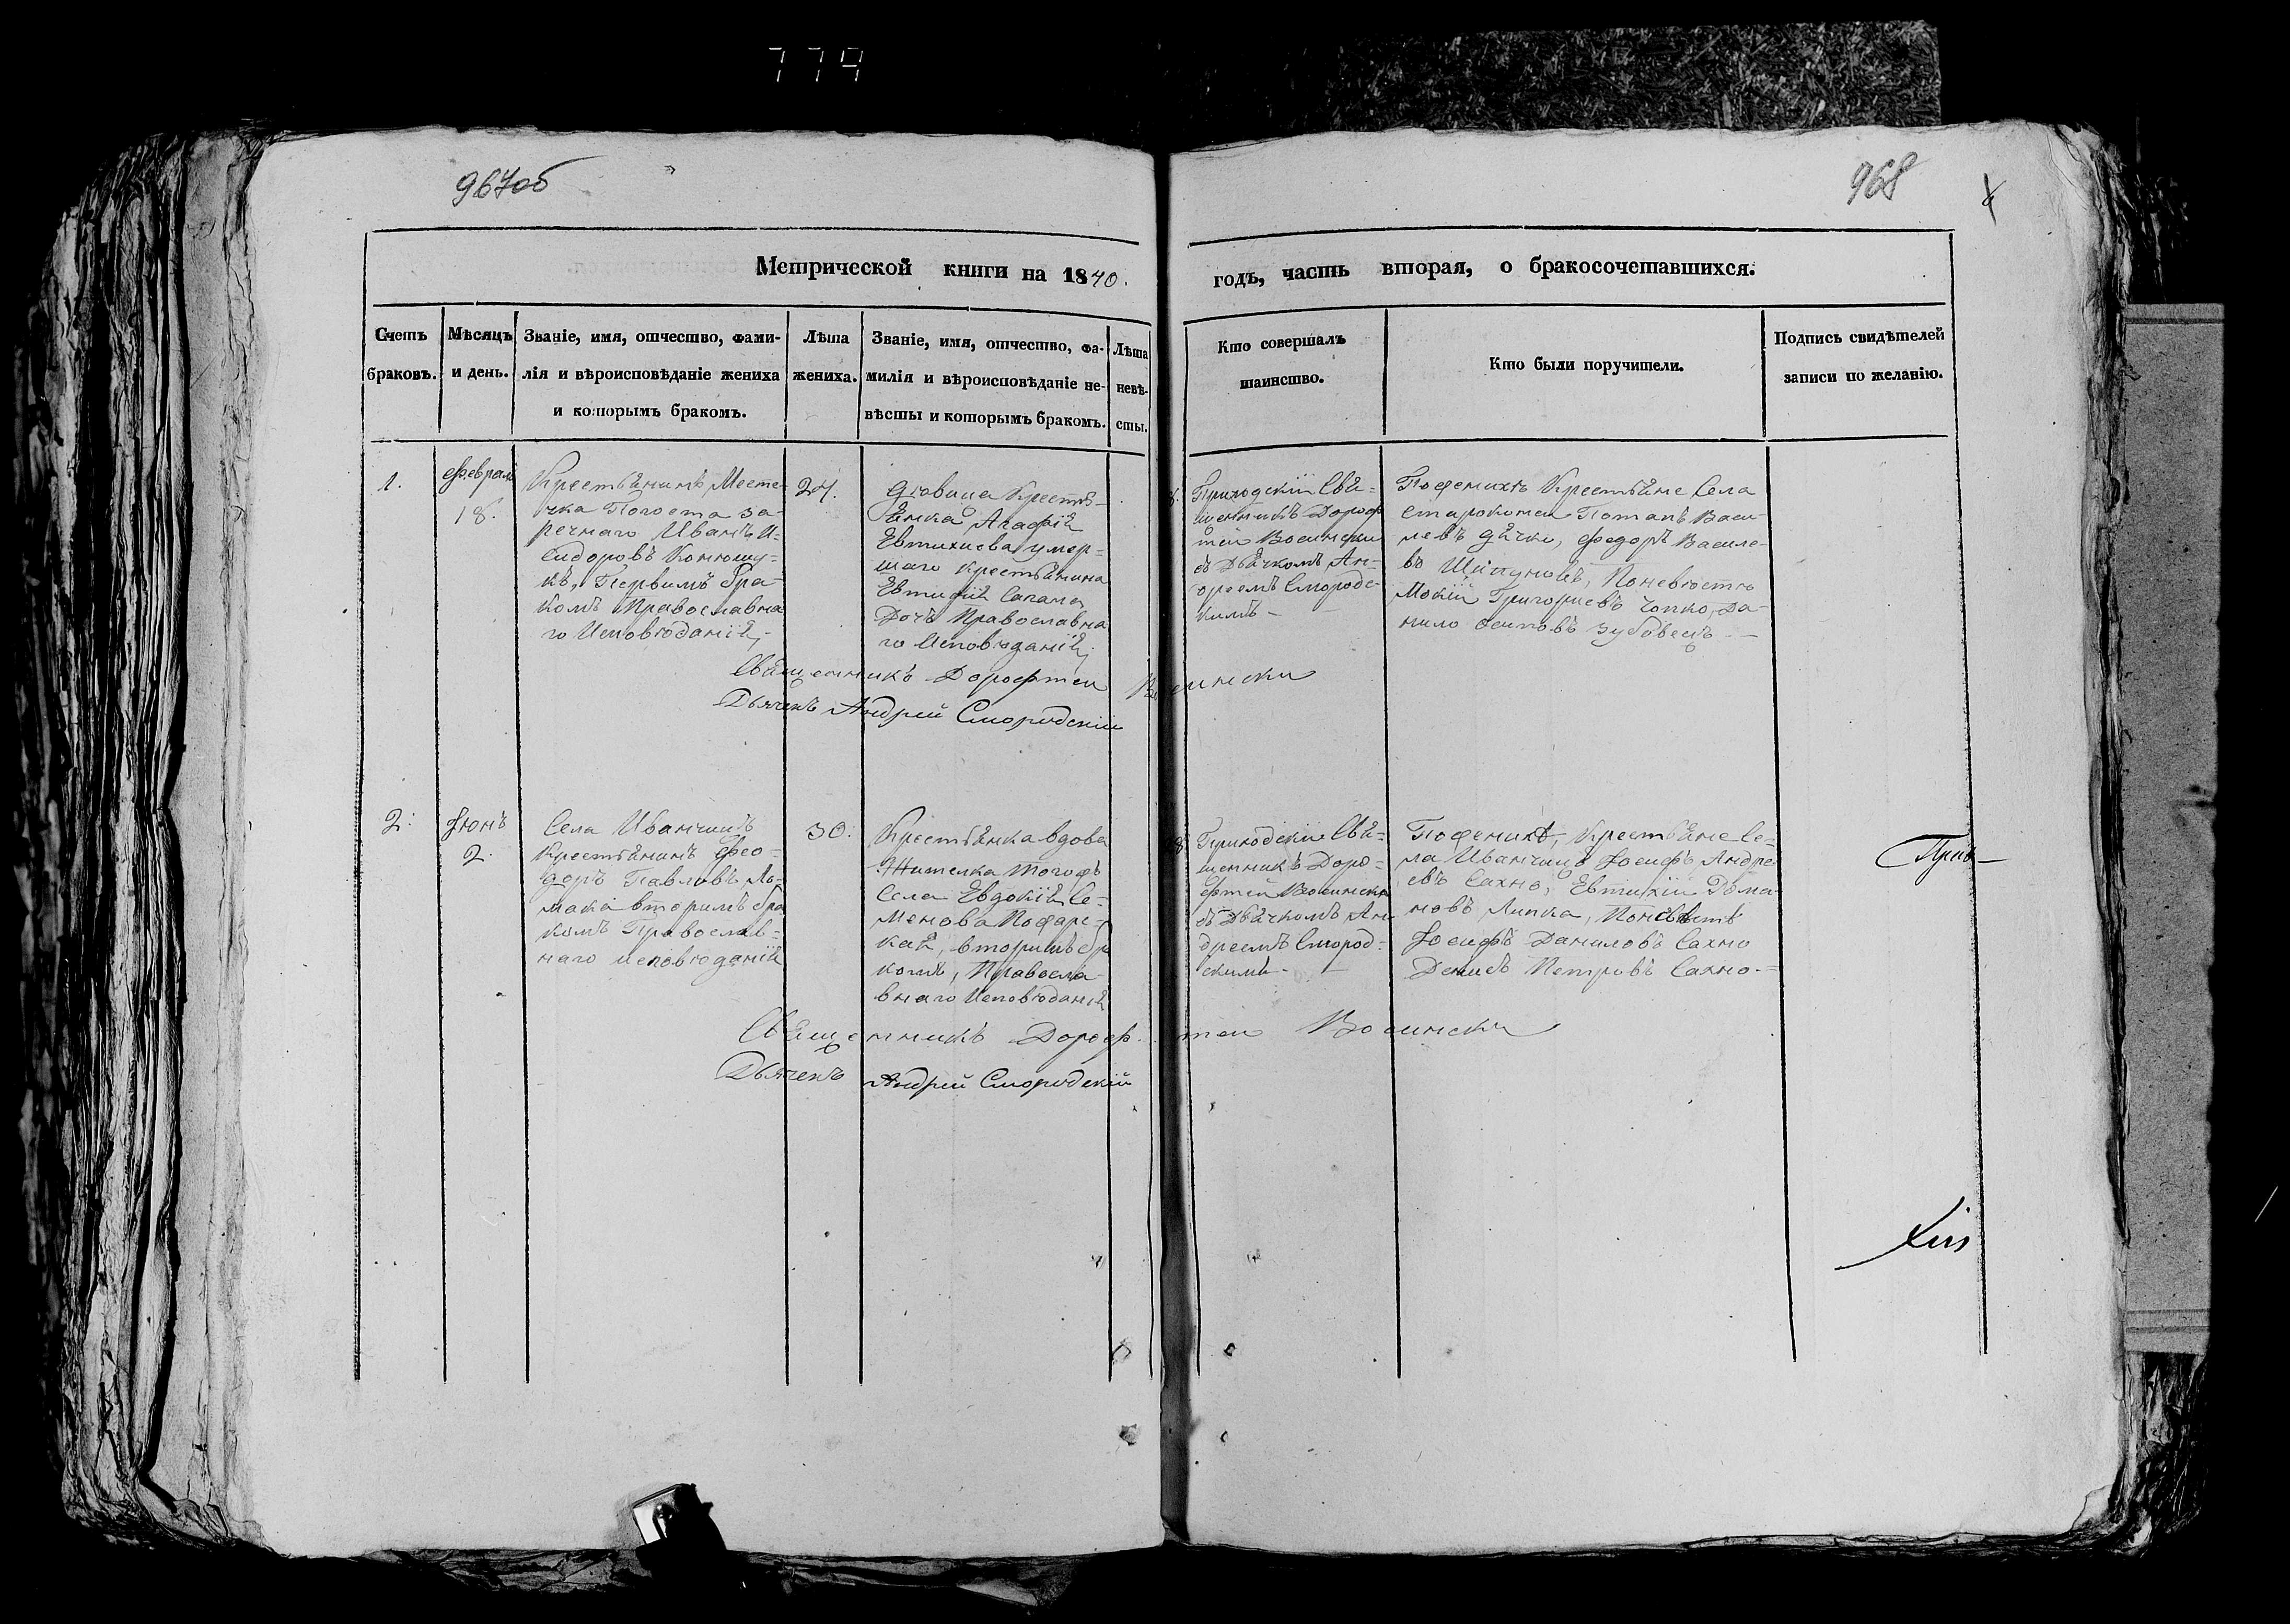 774
967об
968
Метрической книги на 1840.
годъ, часть вторая, о бракосочетавшихся.
Счетъ
браковъ.
Мѣсяцъ
и день.
Званіе, имя, отчество, фами-
лія и вѣроисповѣданіе жениха
и которымъ бракомъ.
Лѣта
жениха.
Званіе, имя, отчество, фа-
милія и вѣроисповѣданіе не-
вѣсты и которымъ бракомъ.
Лѣта
невѣ-
сты.
Кто совершалъ
таинство.
Кто были поручители.
Подпись свидѣтелей
записи по желанію.
1.
Февраля
18.
Крестьянинъ Месте-
чка Погоста За-
речнаго Иванъ И-
сидоровъ
Первымъ бра-
комъ Православна
го Исповюданій
24.
Дювица Крестя-
янка Агафій
Евтихиева умер-
шаго крестьянина
Евтифій
Дочъ Православна
го Исповюданій
Приходскій Свя-
щенникъ Дороф
тей Восински
съ Дьячкомъ Ан-
дреемъ Смородс-
кимъ -
Поженихъ Крестьяне Села
Старокони Потапъ Васи-
левъ Дячко, Федоръ Василе-
въ Поневюстю
Мокій Григориевъ Чопко, Да-
нило Осиповъ Зубовецъ -
Священникъ Дорофтеи Восински
Дьячекъ Андрей Смородскій
2.
Іюнъ
2.
Села Иванчицъ
Крестьянинъ Фео-
доръ Павловъ
вторимъ бра
комъ Православ-
наго исповюданій
30.
Крестьянка вдова
Жителка тогожъ
Села Евдокій Се-
менова
вторимъ бр
комъ, Правосла-
внаго Исповюданій
Приходскій Свя-
щенникъ Доро-
фтей Восински
съ Дьячкомъ Ан
дреемъ Смород-
скимъ -
Поженихъ, Крестьяне Се-
ла Иванчицъ Іосифъ Андре
евъ Сахно, Евтихій Дома-
новъ Липка,
Іосифъ Даниловъ Сахно
Денисъ Петровъ Сахно -
Священникъ Дорофтеи Восински
Дьячекъ Андрей Смородскій